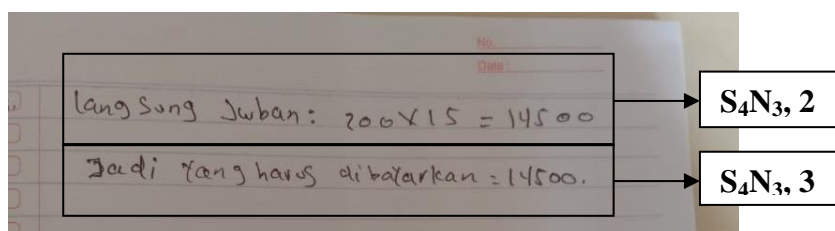 No.
Date:
Langsung Jwban: 200X15 = 14500
S₄N₃, 2
Jadi Yang harus dibayarkan = 14500.
S₄N₃, 3